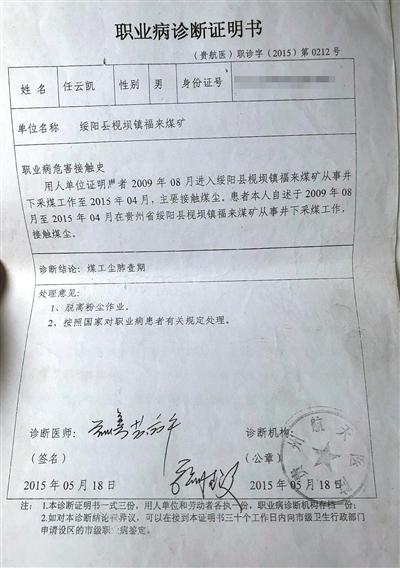 职业病诊断证明书
（贵航医）职诊字（2015）第 0212 号
姓 名 任云凯 性别 男 身份证号
单位名称 绥阳县枧坝镇福来煤矿
职业病危害接触史
用人单位证明患者 2009 年 08 月进入绥阳县枧坝镇福来煤矿从事井
下采煤工作至 2015 年 04 月，主要接触煤尘。患者本人自述于 2009 年 08
月至 2015 年 04 月在贵州省绥阳县枧坝镇福来煤矿从事井下采煤工作，
接触煤尘。
诊断结论：煤工尘肺壹期
处理意见：
1、脱离粉尘作业。
2、按照国家对职业病患者有关规定处理。
诊断医师： 诊断机构：
（签名） （公章）
2015 年 05 月 18 日 2015 年 05 月 18 日
注： 1.本诊断证明书一式三份，用人单位和劳动者各执一份，职业病诊断机构存档一份；
2.如对本诊断结论有异议，可以在接到本证明书三十个工作日内向市级卫生行政部门
申请设区的市级职业病鉴定。